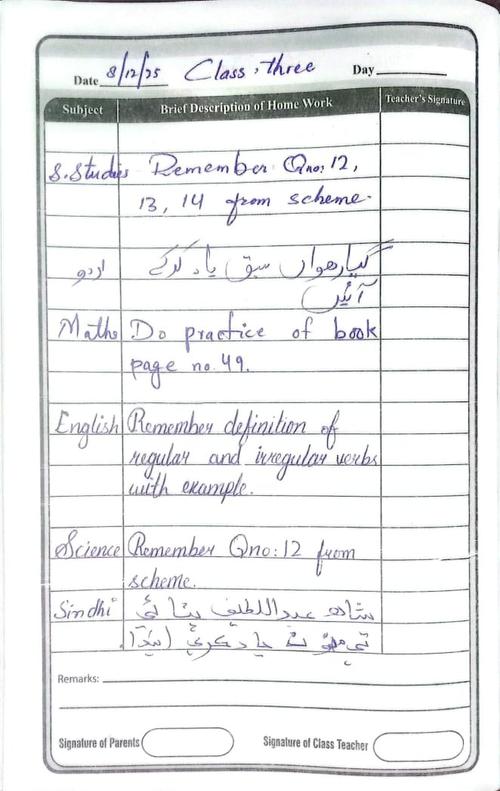 Date 8/12/25 Class, three Day
Subject Brief Description of Home Work Teacher's Signature
S.Studies Remember Qno: 12,
13, 14 from scheme.
اردو گیارھواں سبق یاد کرکے
آئیں
Maths Do practice of book
page no. 49.
English Remember definition of
regular and irregular verbs
with example.
Science Remember Qno: 12 from
scheme.
Sindhi شاھ عبداللطيف ڀٽائي
ياد ڪري
Remarks:
Signature of Parents Signature of Class Teacher